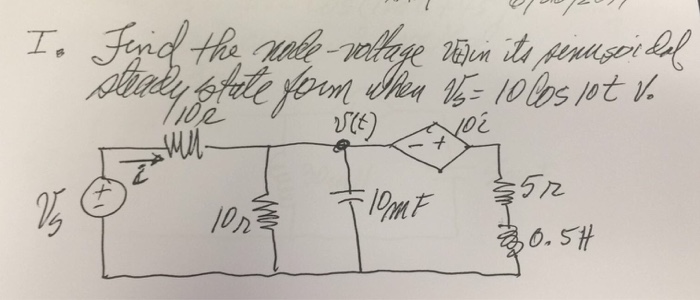 I. Find the node-voltage v(t) in its sinusoidal
steady state form when Vs = 10 Cos 10t V.
10Ω
v(t)
10i
i
- +
Vs
+
-
10Ω
10mF
5Ω
0.5H